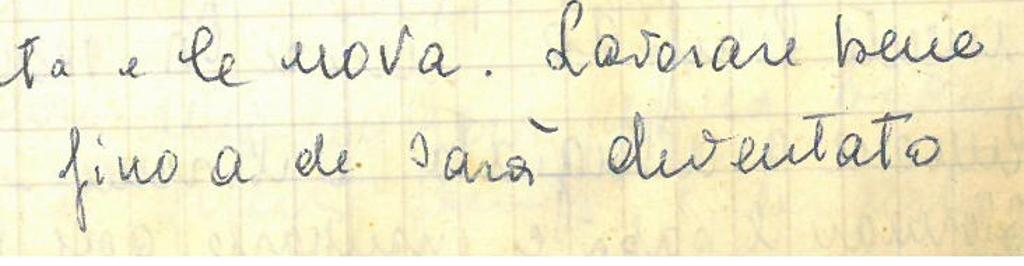 ta e le uova. Lavorare bene
fino a che sarà diventato